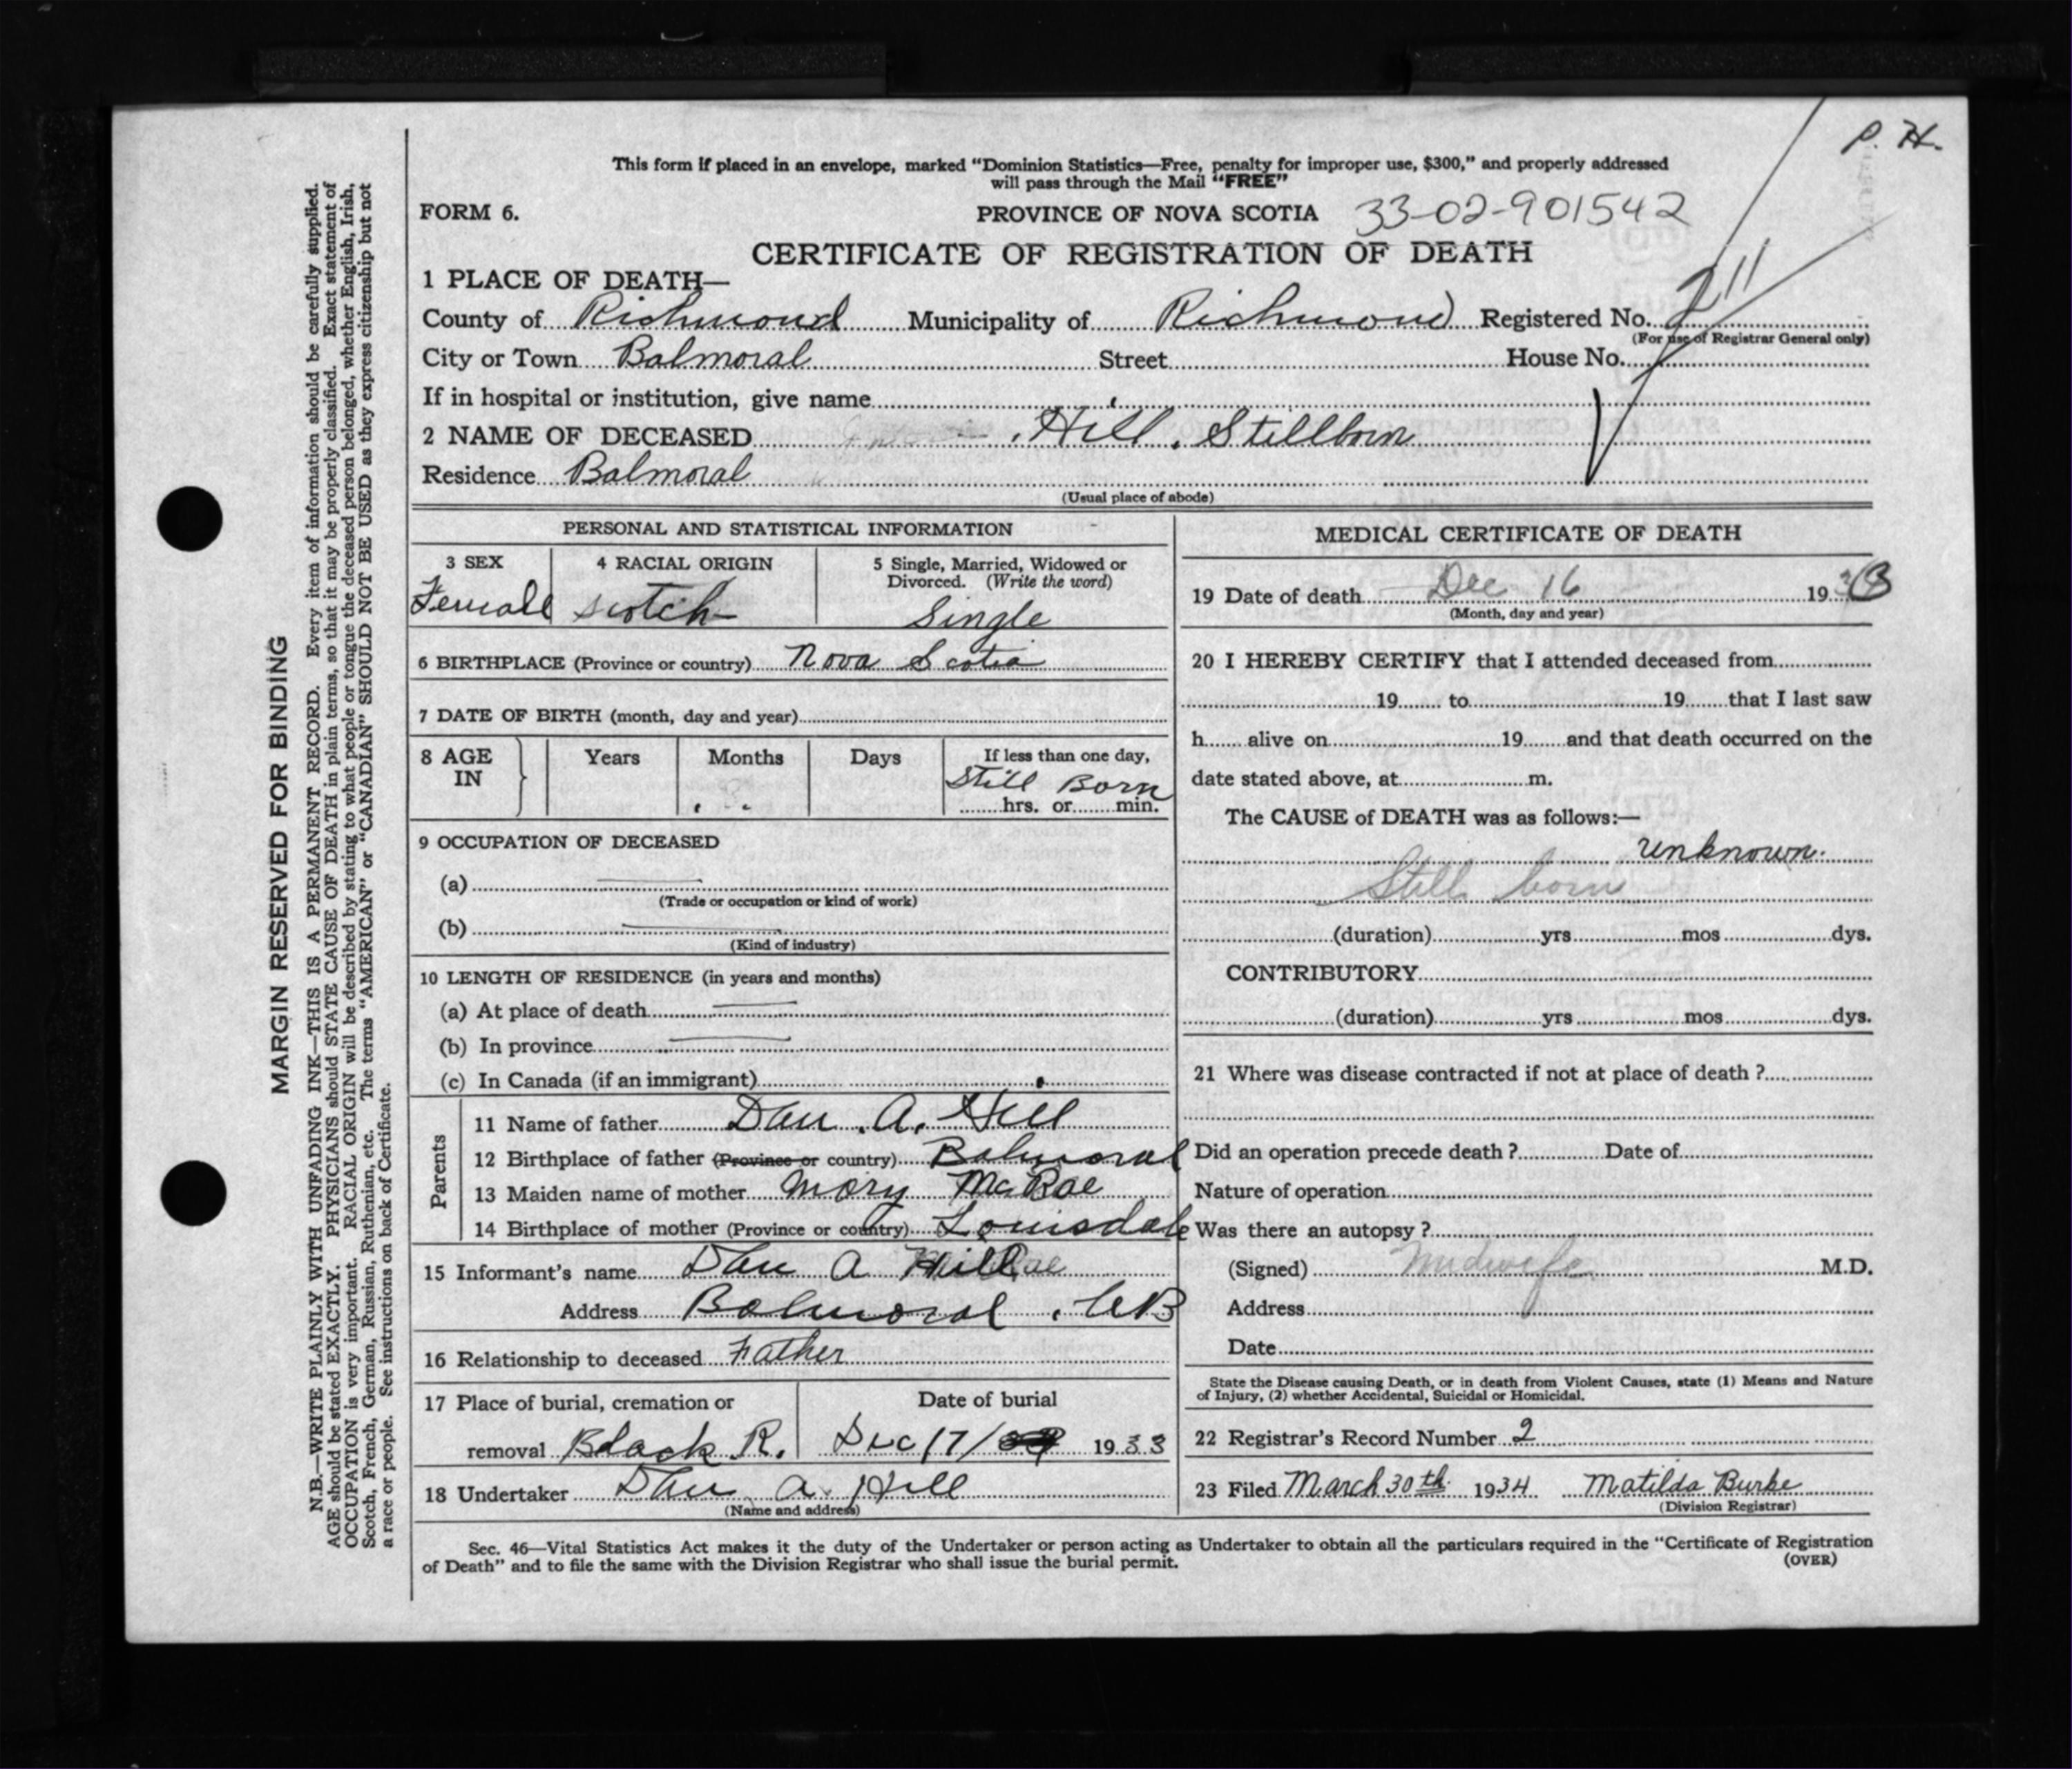 P. H.
This form if placed in an envelope, marked "Dominion Statistics—Free, penalty for improper use, $300," and properly addressed
will pass through the Mail "FREE"
FORM 6.
PROVINCE OF NOVA SCOTIA 33-02-901542
CERTIFICATE OF REGISTRATION OF DEATH
1 PLACE OF DEATH—
County of Richmond Municipality of Richmond Registered No. 211
(For use of Registrar General only)
City or Town Balmoral Street House No.
If in hospital or institution, give name
2 NAME OF DECEASED Hill, Stillborn
Residence Balmoral
(Usual place of abode)
PERSONAL AND STATISTICAL INFORMATION
3 SEX 4 RACIAL ORIGIN 5 Single, Married, Widowed or
Divorced. (Write the word)
Female Scotch Single
6 BIRTHPLACE (Province or country) Nova Scotia
7 DATE OF BIRTH (month, day and year)
8 AGE IN Years Months Days If less than one day,
Still Born
hrs. or min.
9 OCCUPATION OF DECEASED
(a)
(Trade or occupation or kind of work)
(b)
(Kind of industry)
10 LENGTH OF RESIDENCE (in years and months)
(a) At place of death
(b) In province
(c) In Canada (if an immigrant)
Parents
11 Name of father Dan. A. Hill
12 Birthplace of father (Province or country) Balmoral
13 Maiden name of mother Mary McRae
14 Birthplace of mother (Province or country) Louisdale
15 Informant's name Dan A Hill
Address Balmoral. CB
16 Relationship to deceased Father
17 Place of burial, cremation or Date of burial
removal Black R. Dec 17/ 1933
18 Undertaker Dan A. Hill
(Name and address)
MEDICAL CERTIFICATE OF DEATH
19 Date of death Dec 16 1933
(Month, day and year)
20 I HEREBY CERTIFY that I attended deceased from
19 to 19 that I last saw
h alive on 19 and that death occurred on the
date stated above, at m.
The CAUSE of DEATH was as follows:—
unknown.
Still born
(duration) yrs mos dys.
CONTRIBUTORY
(duration) yrs mos dys.
21 Where was disease contracted if not at place of death ?
Did an operation precede death ? Date of
Nature of operation
Was there an autopsy ?
(Signed) Midwife M.D.
Address
Date
State the Disease causing Death, or in death from Violent Causes, state (1) Means and Nature
of Injury, (2) whether Accidental, Suicidal or Homicidal.
22 Registrar's Record Number 2
23 Filed March 30th 1934 Matilda Burke
(Division Registrar)
Sec. 46—Vital Statistics Act makes it the duty of the Undertaker or person acting as Undertaker to obtain all the particulars required in the "Certificate of Registration
of Death" and to file the same with the Division Registrar who shall issue the burial permit.
(OVER)
MARGIN RESERVED FOR BINDING
N.B.—WRITE PLAINLY WITH UNFADING INK—THIS IS A PERMANENT RECORD. Every item of information should be carefully supplied.
AGE should be stated EXACTLY. PHYSICIANS should STATE CAUSE OF DEATH in plain terms, so that it may be properly classified. Exact statement of
OCCUPATION is very important. RACIAL ORIGIN will be described by stating to what people or tongue the deceased person belonged, whether English, Irish,
Scotch, French, German, Russian, Ruthenian, etc. The terms "AMERICAN" or "CANADIAN" SHOULD NOT BE USED as they express citizenship but not
a race or people. See instructions on back of Certificate.